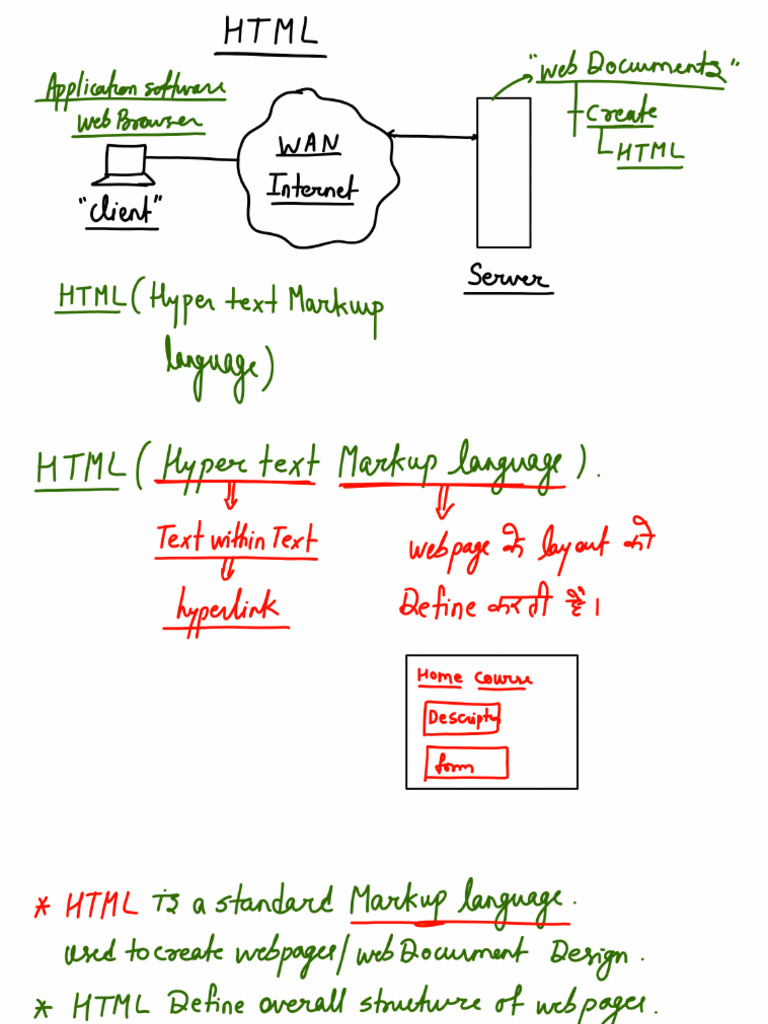 HTML
Application software
Web Browser
"client"
WAN
Internet
"web Documents"
Create
HTML
Server
HTML (Hyper text Markup
language)
HTML (Hyper text Markup language).
Text within Text
hyperlink
webpage के layout को
Define करती है।
Home Course
Descripto
form
* HTML is a standard Markup language.
used to create webpages/web Document Design.
* HTML Define overall structure of webpages.